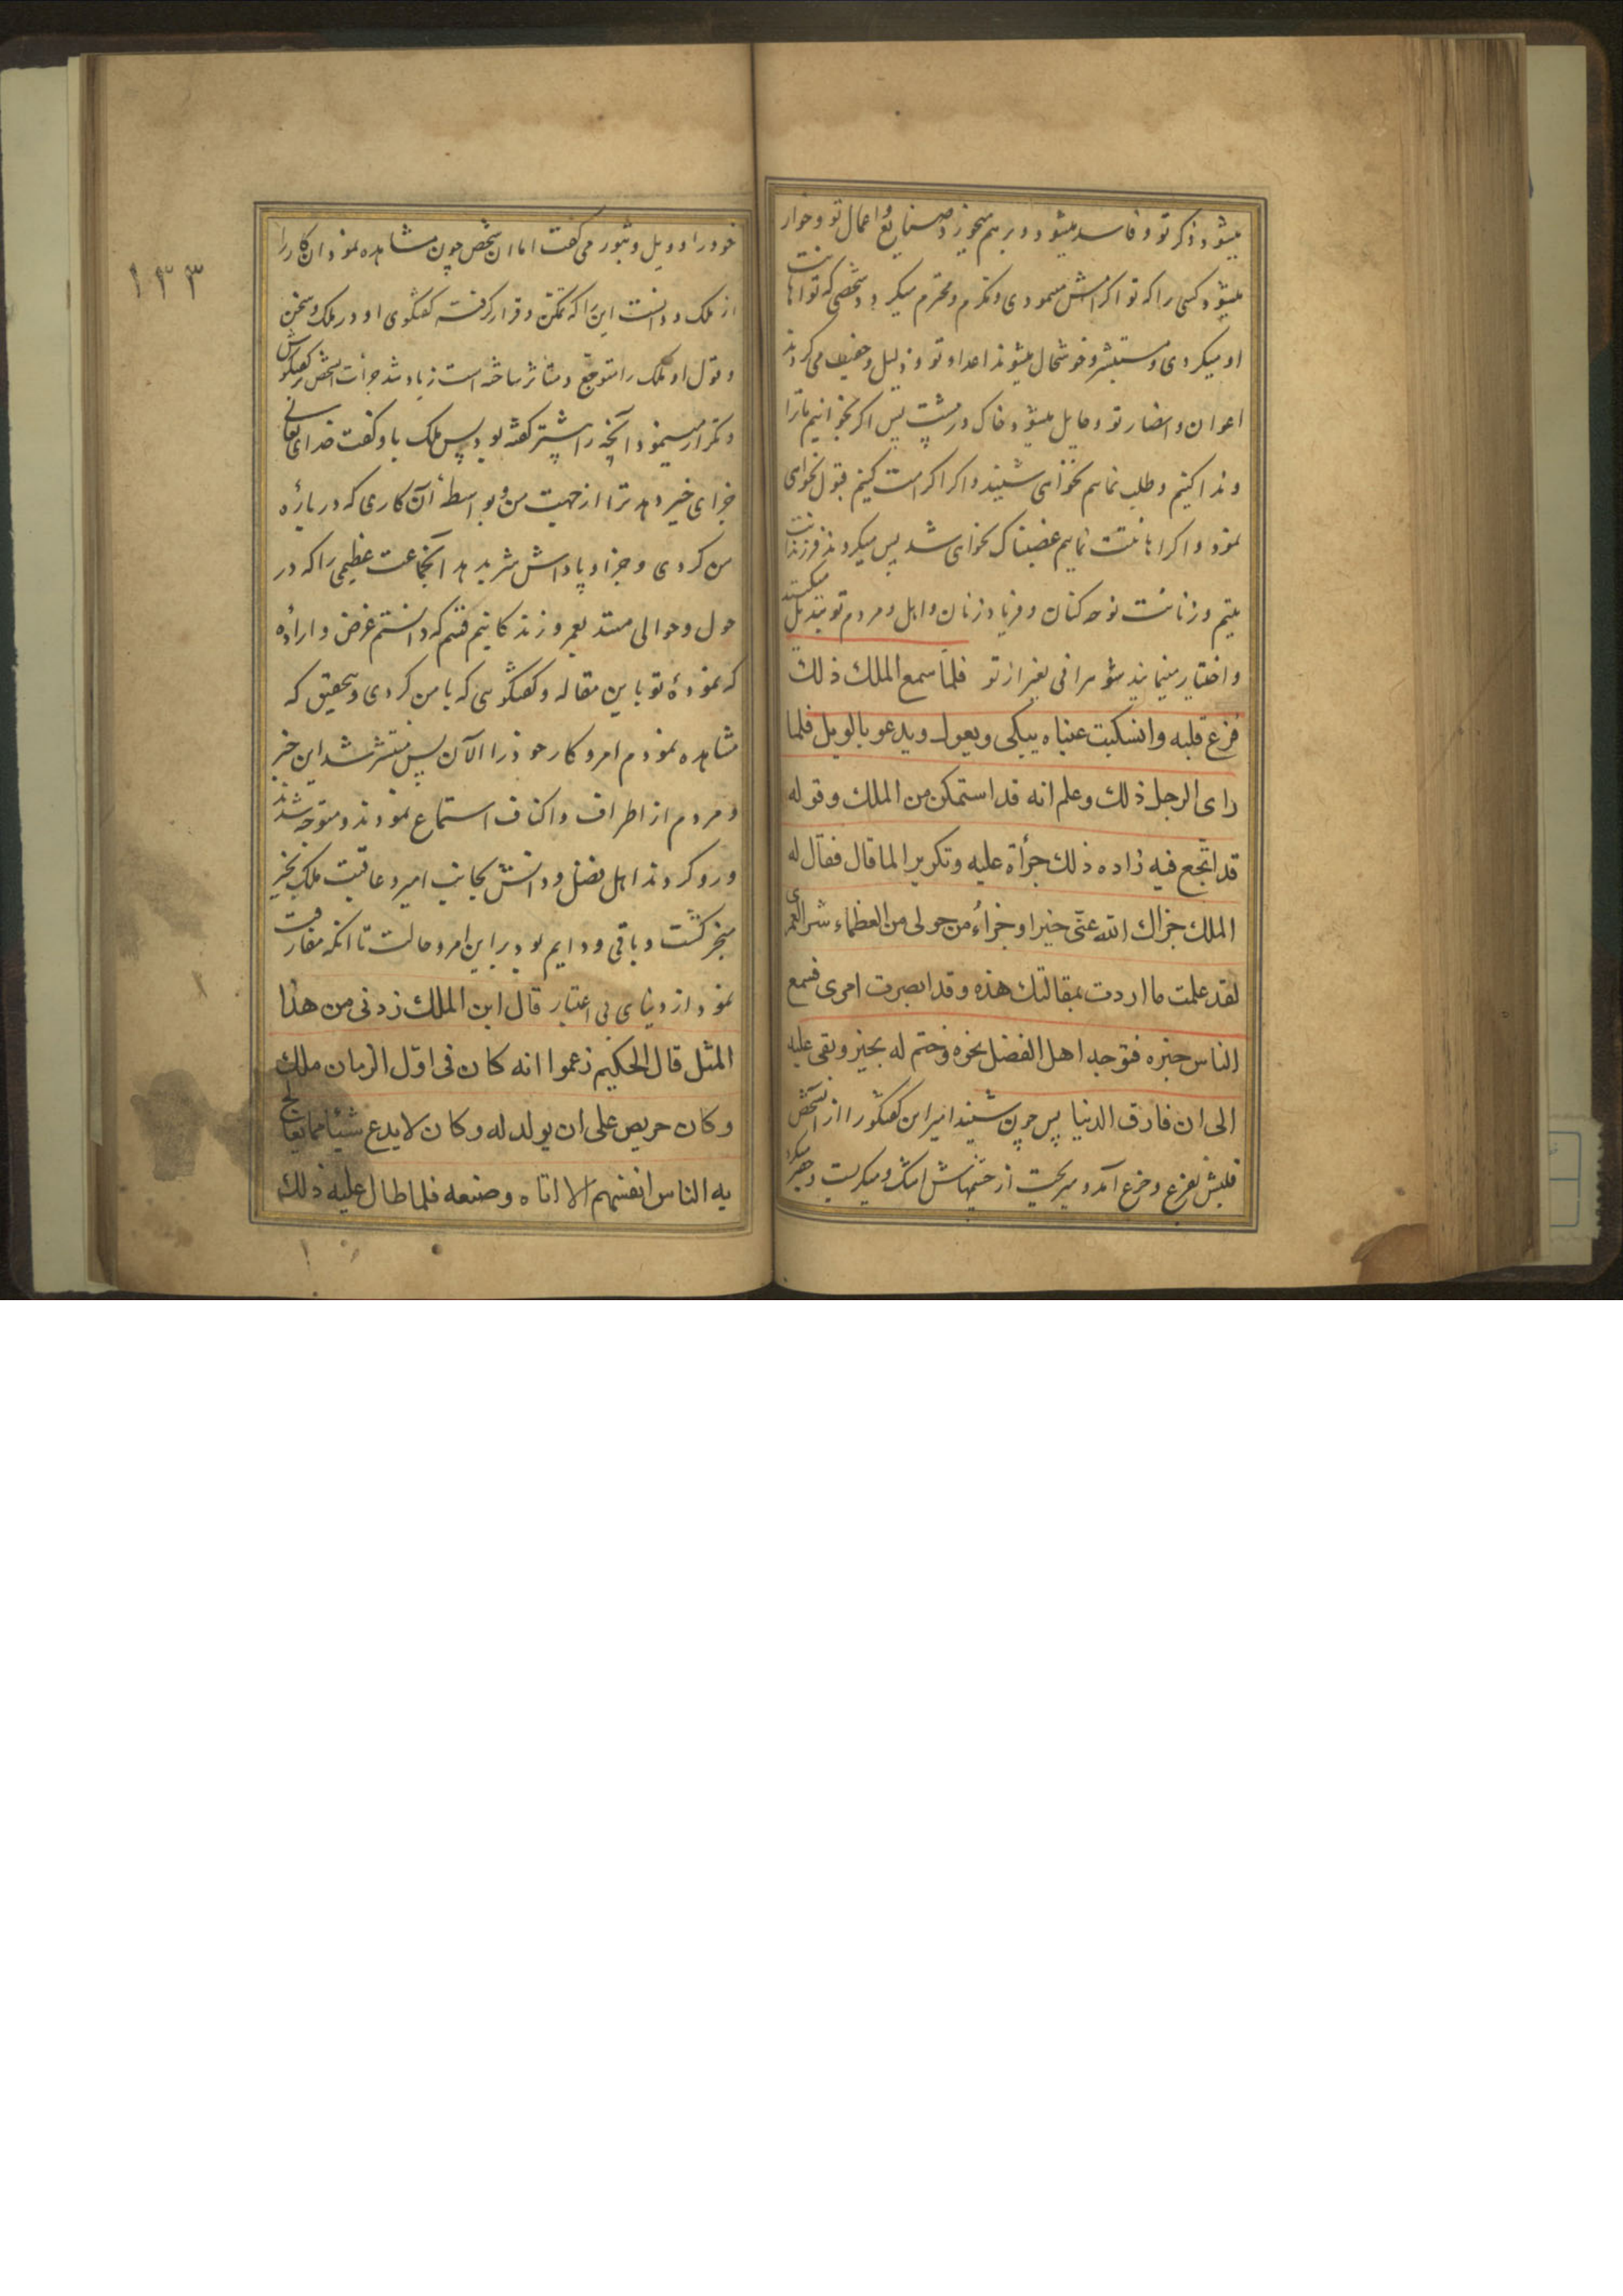 میشود ذکر تو و فاسد میشود و برهم میخورد صنایع و اعمال تو و خوار
میشود کسی را که تو اکرامش مینمودی و مکرم و محترم میکردد شخصی که تو اهانت
او میکردی و مستبشر و خوشحال میشوند اعداء تو و ذلیل و خفیف می کردند
اعوان و انصار تو و حایل میشود خاک در پس اکر بخوانیم ماترا
و ندا کنیم و طلب نماییم نخواهی شنید و اکر اکرامت کنیم قبول نخواهی
نمود و اکر اهانتت نماییم غضبناک نخواهی شد پس میکردند فرزندانت
یتیم و زنانت نوحه کنان و فریاد زنان و اهل و مردم تو تبدیل میکنند
و اختیار مینمایند شوهرانی بغیر از تو فلما سمع الملك ذلك
فزع قلبه وانسكبت عيناه يبكى ويعول ويدعو بالويل فلما
راى الرجل ذلك وعلم انه قد استمكن من الملك وقوله
قد انجع فيه زاده ذلك جرأة عليه وتكريرا لما قال فقال له
الملك جزاك الله عنى خيرا وجزاء من حولى من العظماء شرا لعمرى
لقد علمت ما اردت بمقالتك هذه وقد ابصرت امرى فسمع
الناس خبره فتوجه اهل الفضل نحوه وختم له بخير وبقى عليه
الى ان فارق الدنيا پس چون شنید امیر این کفتکو را از انشخص
قلبش بفزع و جزع آمد و میریخت از چشمهاش اشک و میکریست و
خود را و ویل و ثبور می کفت اما ان شخص چون مشاهده نمود ان کار را
از ملک و دانست این را که تمکن و قرار کرفته کفتکوی او در ملک و سخن
و قول او ملک را متوجع و متاثر ساخته است زیاد شد جرات انشخص کفتکوش
و تکرار مینمود آنچه را پیشتر کفته بود پس ملک باو کفت خدای تعالی
جزای خیر دهد ترا از جهت من و بواسطۀ آن کاری که درباره
من کردی و جزا و پاداش شر بدهد آنجماعت عظیمی را که در
حول و حوالی منند بعمر و زندکانیم قسم که دانستم غرض و اراده
که نموده تو باین مقاله و کفتکویی که با من کردی و بتحقیق که
مشاهده نمودم امر و کار خود را الآن پس منتشر شد این خبر
و مردم از اطراف و اکناف استماع نمودند و متوجه شدند
و رو کردند اهل فضل و دانش بجانب امیر و عاقبت ملک بخیر
منجر کشت و باقی و دایم بود بر این امر و حالت تا انکه مفارقت
نمود از دنیای بی اعتبار قال ابن الملك زدنى من هذا
المثل قال الحكيم زعموا انه كان فى اوّل الزمان ملك
وكان حريص على ان يولد له وكان لا يدع شيئا مما يعالج
به الناس انفسهم الا اتاه وصنعه فلما طال عليه ذلك
١٣٣